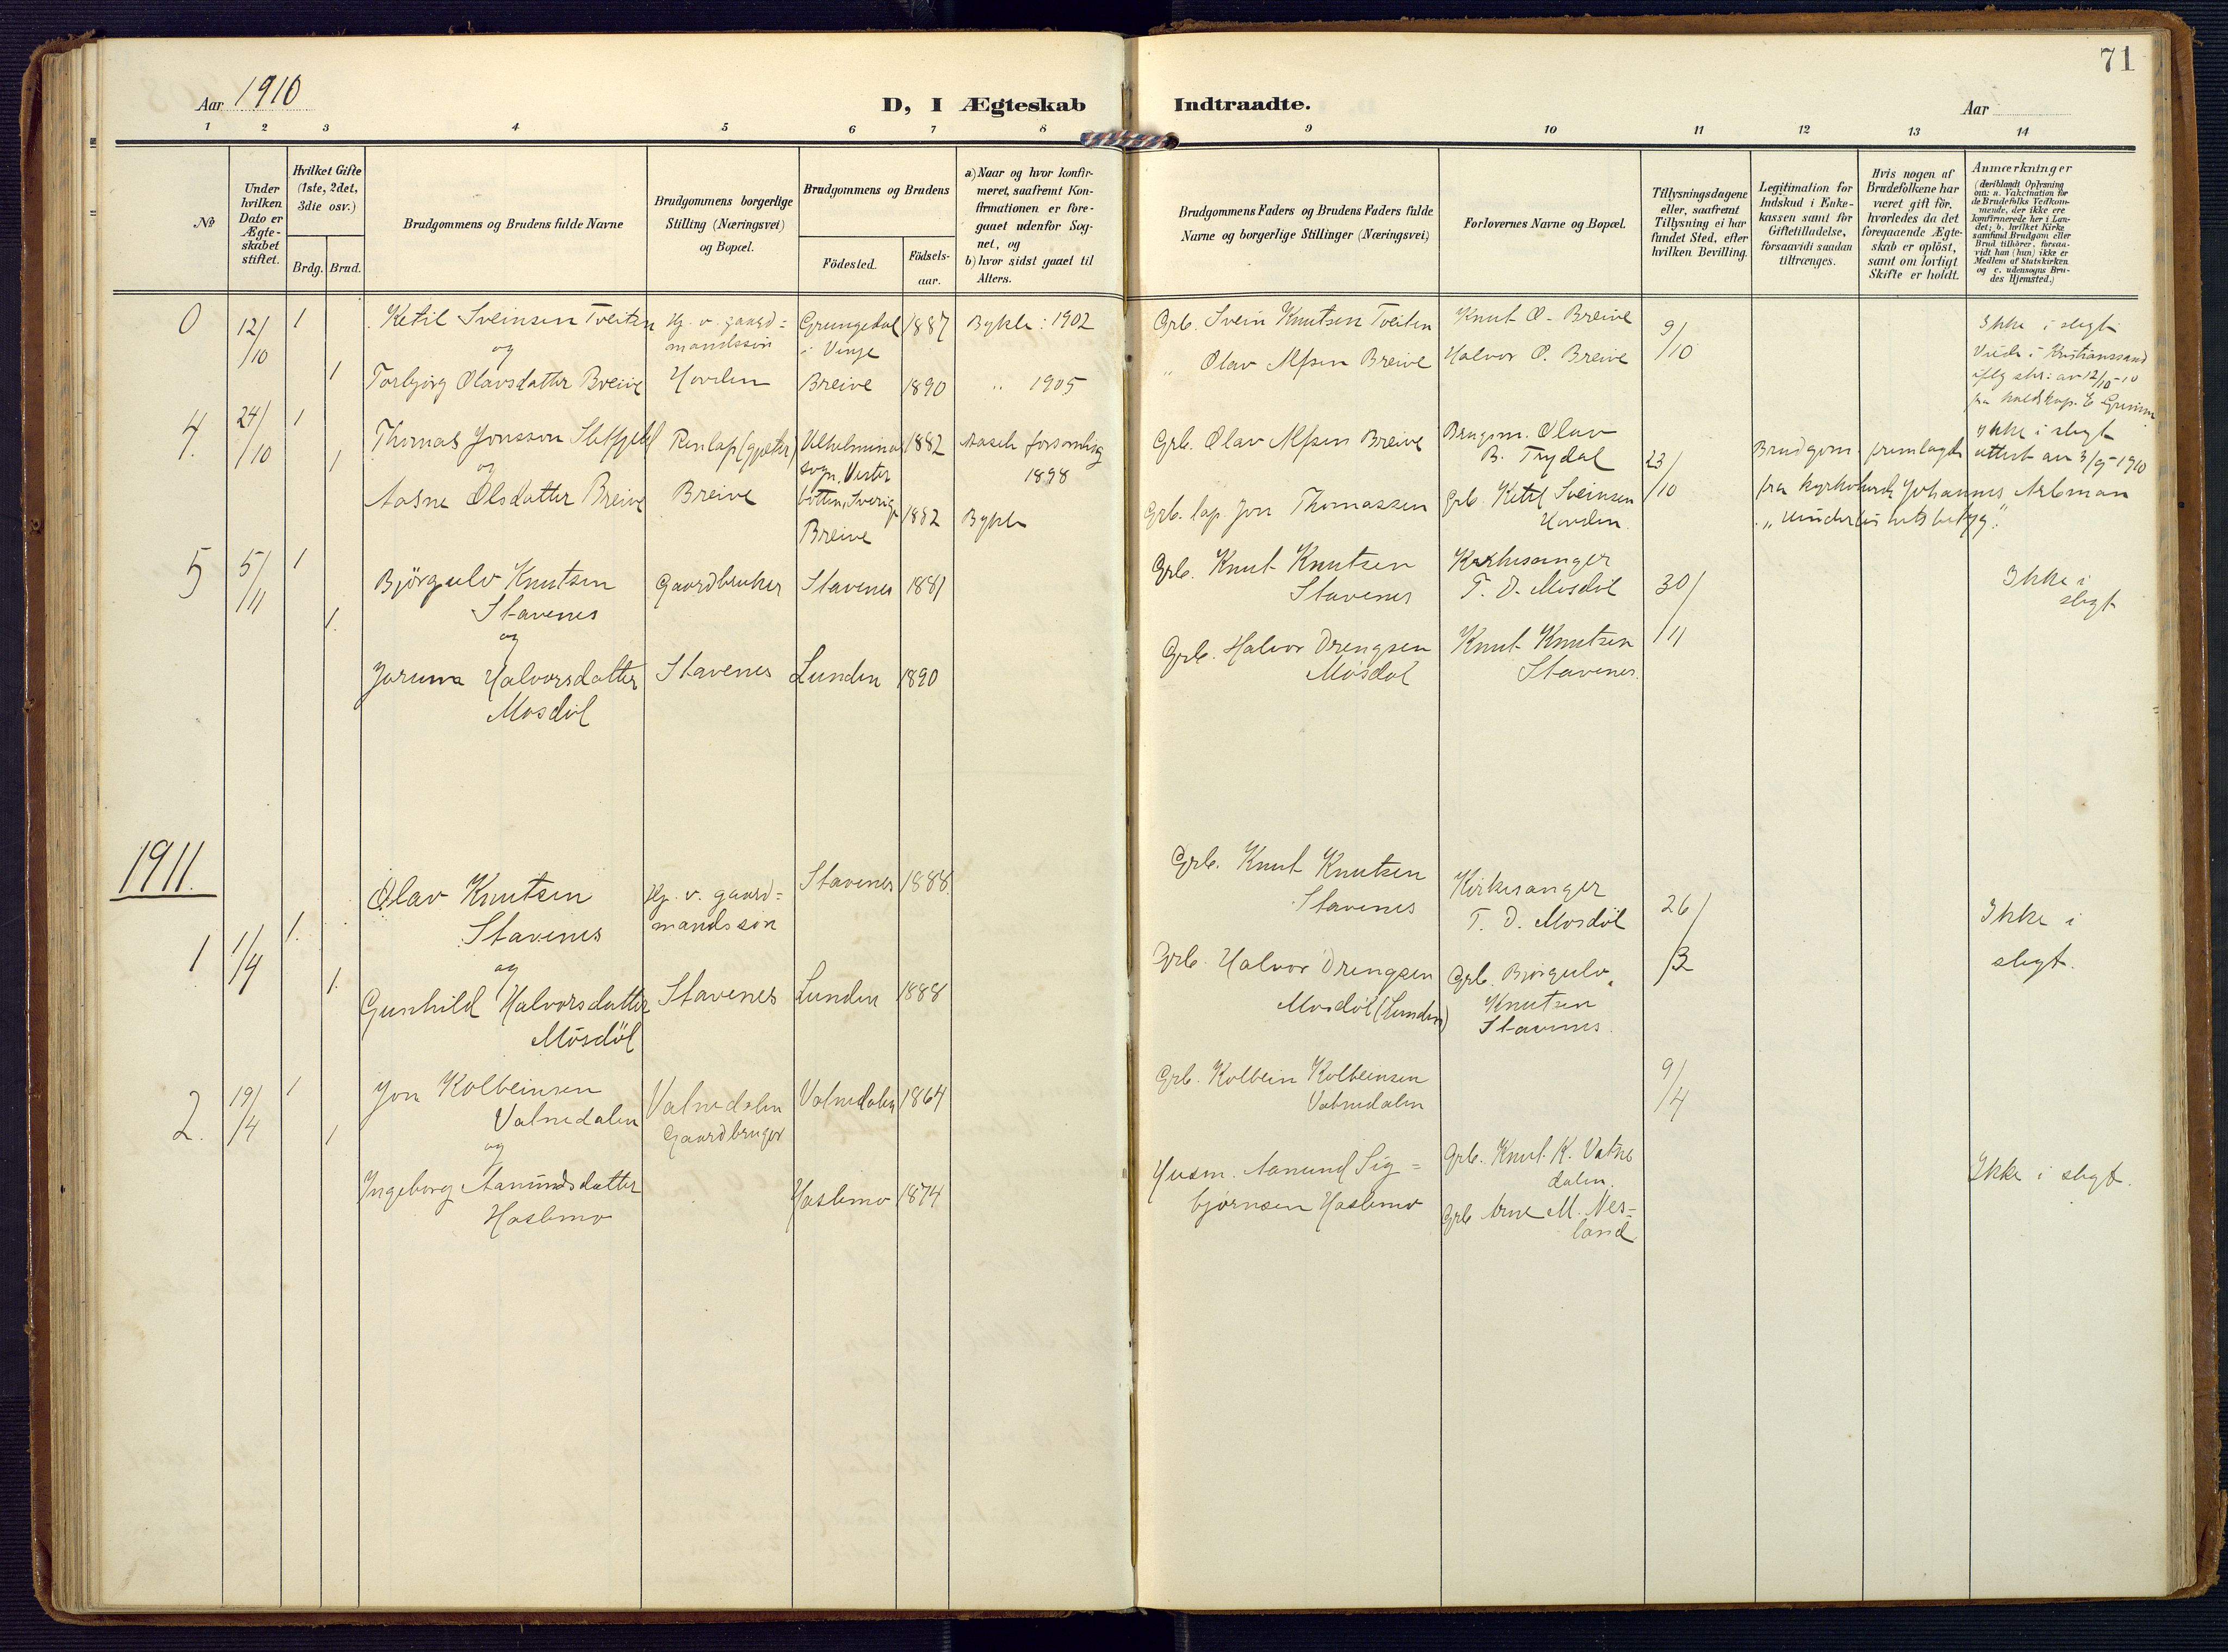 71
Aar 1910
D, I Ægteskab Indtraadte.
Aar
1 2 3 4 5 6 7 8 9 10 11 12 13 14
No
Under hvilken Dato er Ægteskabet stiftet.
Hvilket Gifte (1ste, 2det, 3die osv.)
Brdg. Brud.
Brudgommens og Brudens fulde Navne
Brudgommens borgerlige Stilling (Næringsvei) og Bopæl.
Brudgommens og Brudens
Födested.
Födsels-aar.
a) Naar og hvor konfir-
meret, saafremt Kon-
firmationen er fore-
gaaet udenfor Sog-
net, og
b) hvor sidst gaaet til
Alters.
Brudgommens Faders og Brudens Faders fulde
Navne og borgerlige Stillinger (Næringsvei)
Forlovernes Navne og Bopæl.
Tillysningsdagene
eller, saafremt
Tillysning ei har
fundet Sted, efter
hvilken Bevilling.
Legitimation for
Indskud i Enke-
kassen samt for
Giftetilladelse,
forsaavidt saadan
tiltrænges.
Hvis nogen af
Brudefolkene har
været gift för,
hvorledes da det
foregaaende Ægte-
skab er oplöst,
samt om lovligt
Skifte er holdt.
Anmærkninger
(deriblandt Oplysning
om: a. Vakcination for
de Brudefolks Vedkom-
mende, der ikke ere
konfirmerede her i Lan-
det; b. hvilket Kirke-
samfund Brudgom eller
Brud tilhörer, forsaa-
vidt han (hun) ikke er
Medlem af Statskirken
og c. udensogns Bru-
des Hjemsted.)
0 12/10 1 Ketil Sveinsen Tveiten Hj. v. gaard= Grungedal 1887 Bykle: 1902 Grb. Svein Knutsen Tveiten Knut O. Breive 9/10 Ikke i slegt
og mandssön i Vinje
1 Torbjörg Olavsdatter Breive Hovden Breive 1890 " 1905 " Olav Alfsen Breive Halvor O. Breive
Viede i Kristianssand
iflg skr: av 12/10-10
4. 24/10 1 Thomas Jonsson Renlap (gjæter) 1882 Aasele forsamling Grb. Olav Alfsen Breive Brugsm. Olav 23/10 Ikke i slegt
og sogn, Vester 1898 B. Trydal Brudgom fremlagde attest av 3/9-1910
1 Aasne Olsdatter Breive Breive botten, Sverige Grb. lap. Jon Thomassen Grb. Ketil Sveinsen fra kyrkoherde Johannes Arbman
Breive 1882 Bykle Hovden.
5 5/11 1 Björgulv Knutsen Gaardbruker Stavenes 1881 Grb. Knut Knutsen Kirkesanger 30/11 Ikke i
Stavenes Stavenes T. D. Mosdöl slegt
1. og
Jorunn Halvorsdatter Stavenes Lunden 1890 Grb. Halvor Drengsen Knut Knutsen
Mosdöl Mosdöl Stavenes.
1911.
1 1/4 1. Olav Knutsen Hj. v. gaard= Stavenes 1888. Grb. Knut Knutsen Kirkesanger 26/3 Ikke i
Stavenes mandssön Stavenes T. D. Mosdöl slegt.
1. og
Gunhild Halvorsdatter Stavenes Lunden 1888 Grb. Halvor Drengsen Grb. Björgulv
Mosdöl Mosdöl (Lunden) Knutsen
Stavenes.
2. 19/4 1 Jon Kolbeinsen Vatnedalen Vatnedalen 1864 Grb. Kolbein Kolbeinsen 9/4
Vatnedalen Gaardbruger Vatnedalen
1 og
Ingeborg Aanundsdatter Haslemo 1874 Husm. Aanund Sig= Grb. Knut K. Vatne Ikke i slegt.
Haslemo björnsen Haslemo dalen.
Grb Arne M. Nes=
land